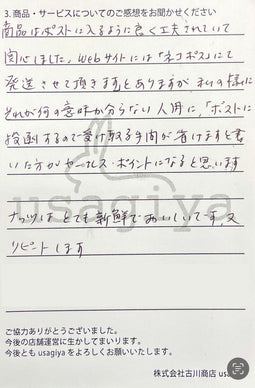 3. 商品・サービスについてのご感想をお聞かせください
商品はポストに入るように良く工夫されていて
関心しました。Webサイトには「ネコポス」にて
発送させて頂きますとありますが 私の様に
それが何の意味か分らない人用に、「ポストに
投函するので受け取る手間が省けますと書
いた方がセールスポイントになると思います
ナッツはとても新鮮でおいしいです。又
リピートします
usagiya
ご協力ありがとうございました。
今後の店舗運営に生かしてまいります。
今後とも usagiya をよろしくお願いいたします。
株式会社古川商店